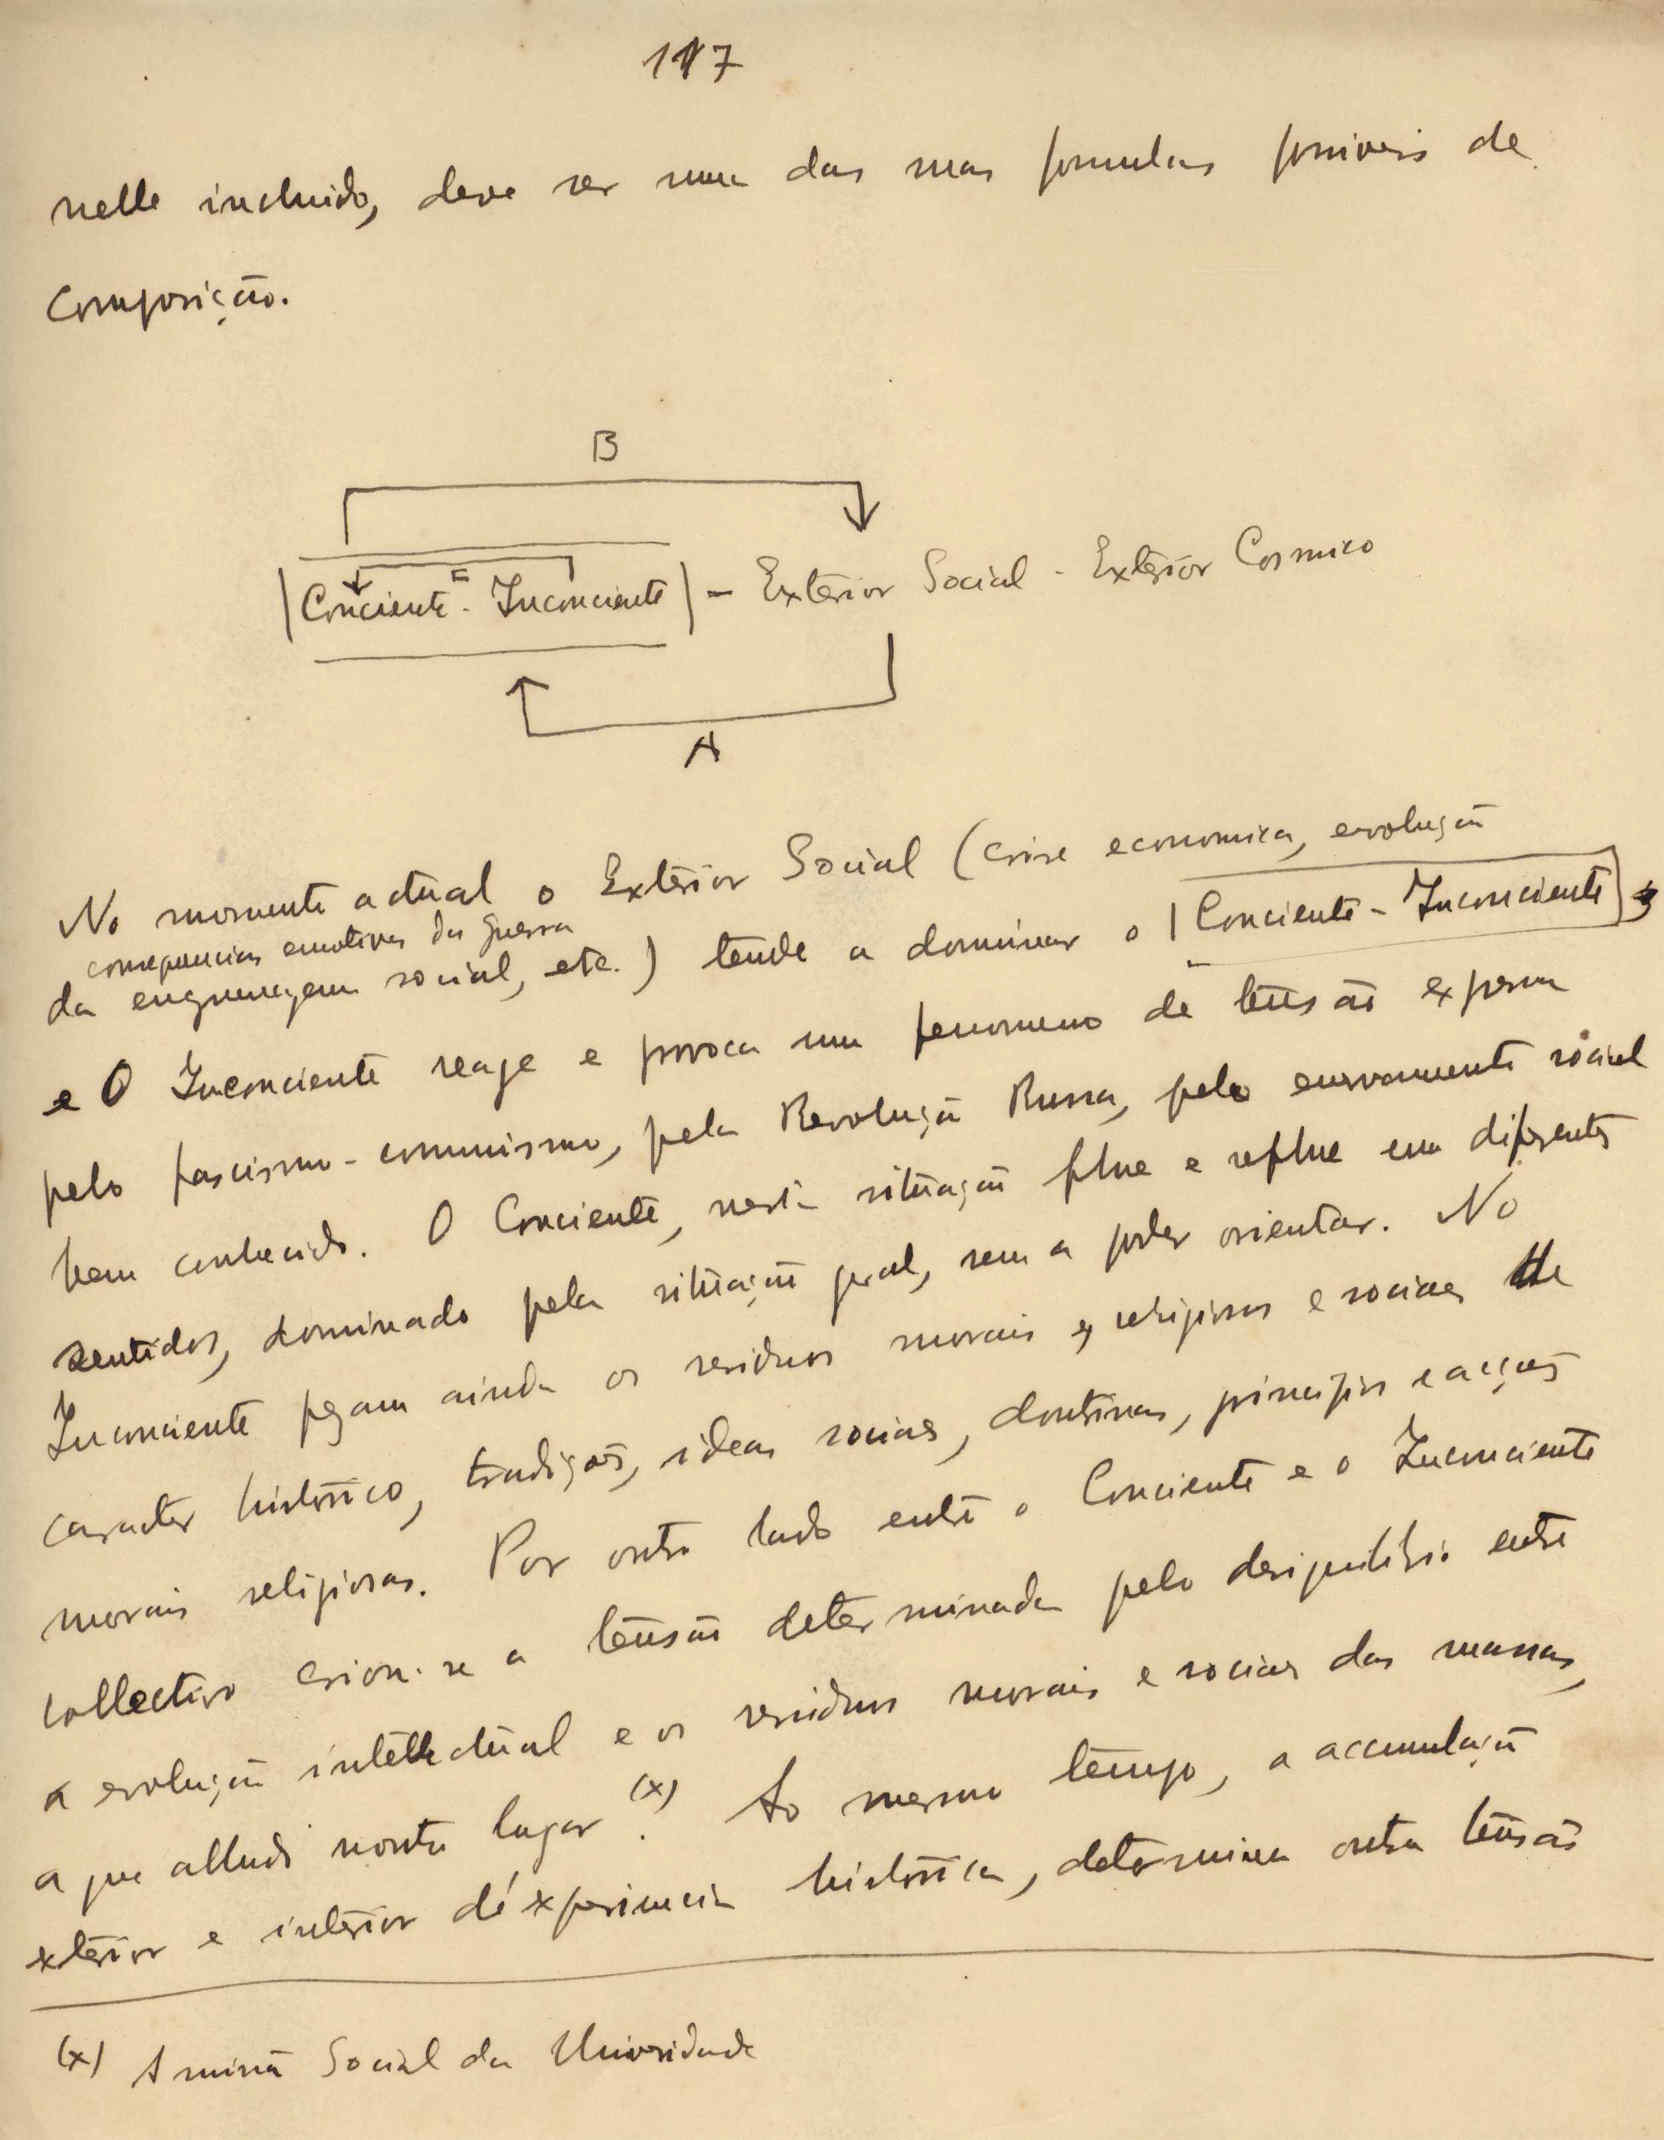 117
nelle incluido, deve ser uma das suas formulas possiveis de
composição.
B
|Conciente - Inconciente| - Exterior Social - Exterior Cosmico
A
No momento actual o Exterior Social (crise economica, evolução
consequencias emotivas da guerra
da engrenagem social, etc.) tende a dominar o |Conciente - Inconciente|
e O Inconciente reage e provoca um fenomeno de tensão expressa
pelo fascismo-comunismo, pela Revolução Russa, pelo enervamento social
bem conhecido. O Conciente, nesta situação flue e reflue em diferentes
sentidos, dominado pela situação geral, sem a poder orientar. No
Inconciente pesam ainda os residuos morais e religiosos e sociaes de
caracter historico, tradições, ideas sociaes, doutrinas, principios e acções
morais religiosas. Por outro lado entre o Conciente e o Inconciente
collectivo criou-se a tensão determinada pelo desiquilibrio entre
a evolução intellectual e os residuos morais e sociaes das massas,
a que alludi noutro lugar (x). Ao mesmo tempo, a accumulação
exterior e interior d'experiencia historica, determina outra tensão
(x) A missão Social da Universidade